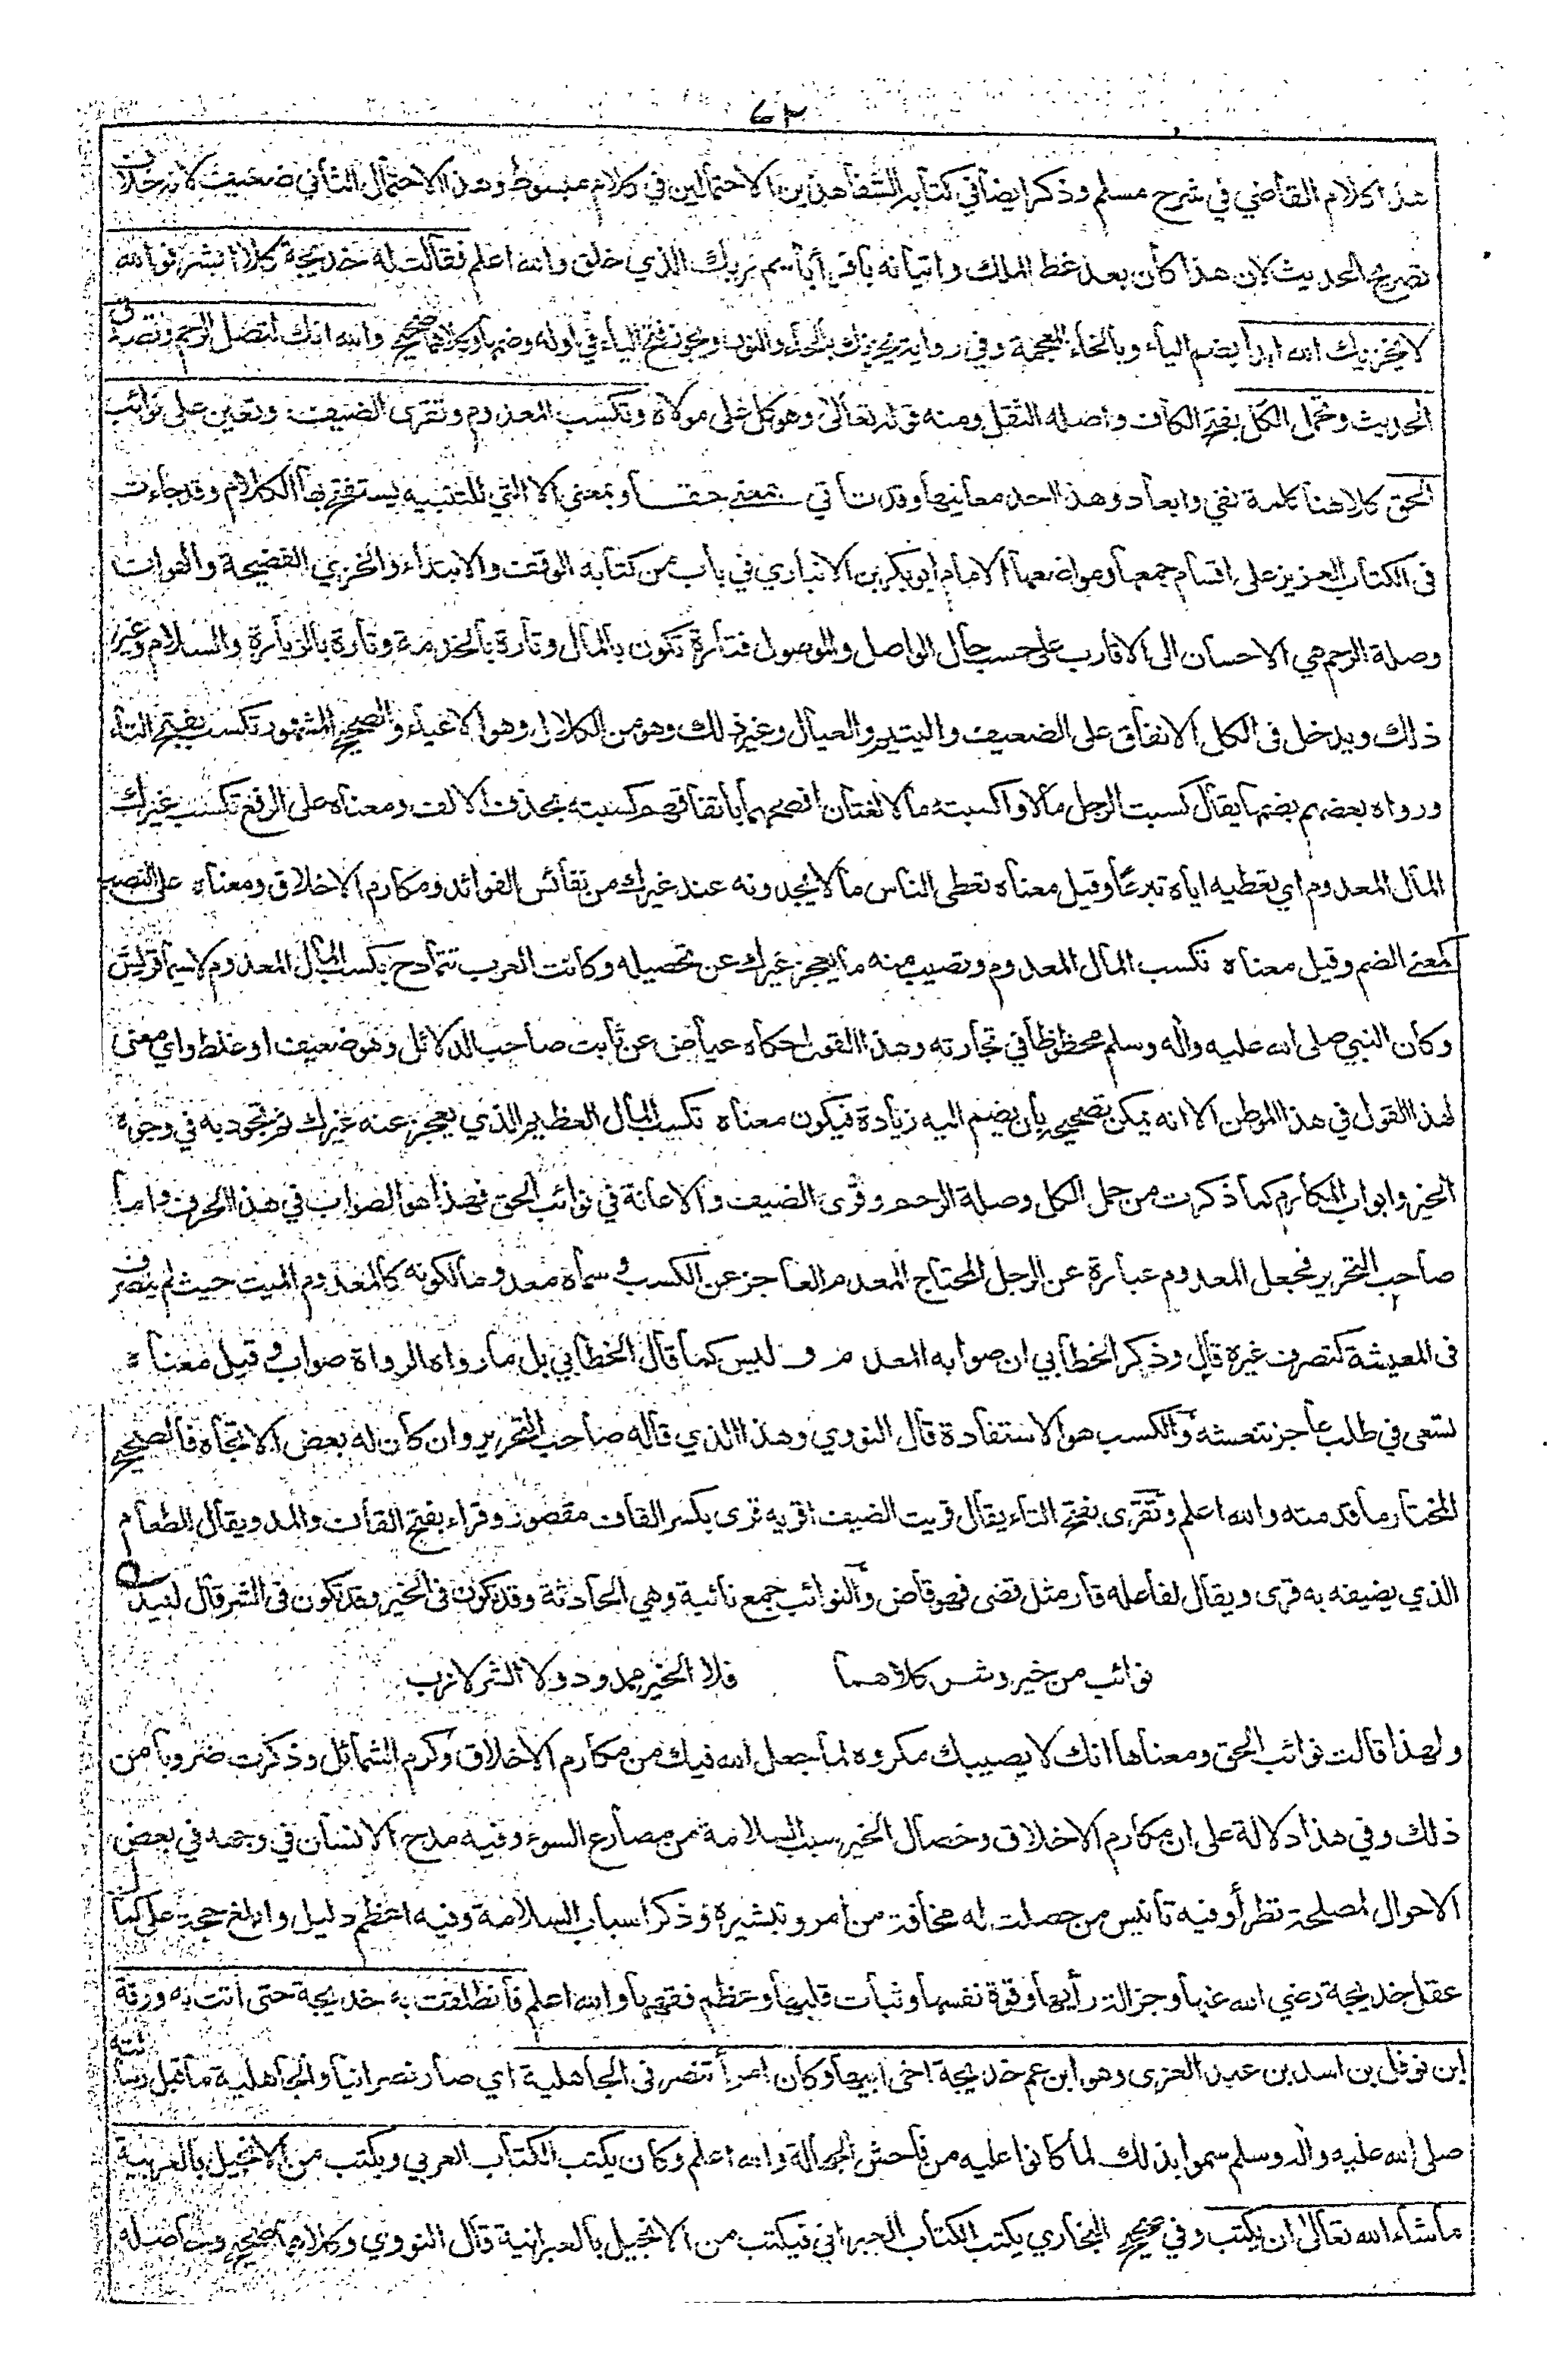 ٦٣
هذا كلام القاضي في شرح مسلم وذكر ايضا في كتابه الشفا هذين الاحتمالين في كلام مبسوط وهذا الاحتمال الثاني ضعيف لانه خلاف
تصريح الحديث لان هذا كان بعد غط الملك واتيانه باقرأ باسم ربك الذي خلق والله اعلم فقالت له خديجة كلا ابشر فوالله
لا يخزيك الله ابدا بضم الياء وبالخاء المعجمة وفي رواية يحزنك بالحاء والنون ويجوز فتح الياء في اوله وضمها وكلاهما صحيح والله انك لتصل الرحم وتصدق
الحديث وتحمل الكل بفتح الكاف واصله الثقل ومنه قوله تعالى وهو كل على مولاه وتكسب المعدوم وتقرى الضيف وتعين على نوائب
الحق كلا هنا كلمة نفي وابعاد وهذا احد معانيها وقد تاتي بمعنى حقا وبمعنى الا التي للتنبيه يستفتح بها الكلام وقد جاءت
في الكتاب العزيز على اقسام جمعها ومواضعها الامام ابو بكر بن الانباري في باب من كتابه الوقف والابتداء والخزي الفضيحة والهوان
وصلة الرحم هي الاحسان الى الاقارب على حسب حال الواصل والموصول فتارة تكون بالمال وتارة بالخدمة وتارة بالزيارة والسلام وغير
ذلك ويدخل في الكل الانفاق على الضعيف واليتيم والعيال وغير ذلك وهو من الكلال وهو الاعياء والصحيح المشهور تكسب بفتح التاء
ورواه بعضهم بضمها يقال كسبت الرجل مالا واكسبته مالا لغتان افصحهما باتفاقهم كسبته بحذف الالف ومعناه على الرفع تكسب غيرك
المال المعدوم اي تعطيه اياه تبرعا وقيل معناه تعطى الناس ما لا يجدونه عند غيرك من نفائس الفوائد ومكارم الاخلاق ومعناه على النصب
كمعنى الضم وقيل معناه تكسب المال المعدوم وتصيب منه ما يعجز غيرك عن تحصيله وكانت العرب تتمادح بكسب المال المعدوم لاسيما قريش
وكان النبي صلى الله عليه واله وسلم محظوظا في تجارته وهذا القول حكاه عياض عن ثابت صاحب الدلائل وهو ضعيف او غلط واي معنى
لهذا القول في هذا الموطن الا انه يمكن تصحيحه بان يضم اليه زيادة فيكون معناه تكسب المال العظيم الذي يعجز عنه غيرك ثم تجود به في وجوه
الخير وابواب المكارم كما ذكرت من حمل الكل وصلة الرحم وقرى الضيف والاعانة في نوائب الحق فهذا هو الصواب في هذا الحرف واما
صاحب التحرير فجعل المعدوم عبارة عن الرجل المحتاج المعدم العاجز عن الكسب وسماه معدوما لكونه كالمعدوم الميت حيث لم يتصرف
في المعيشة كتصرف غيره قال وذكر الخطابي ان صوابه المعدم وليس كما قال الخطابي بل ما رواه الرواة صواب وقيل معناه
تسعى في طلب عاجز تنعشه والكسب هو الاستفادة قال النووي وهذا الذي قاله صاحب التحرير وان كان له بعض الاتجاه فالصحيح
المختار ما قدمته والله اعلم وتقرى بفتح التاء يقال قريت الضيف اقريه قرى بكسر القاف مقصور وقراء بفتح القاف والمد ويقال للطعام
الذي يضيفه به قرى ويقال لفاعله قار مثل قضى فهو قاض والنوائب جمع نائبة وهي الحادثة وقد تكون في الخير وقد تكون في الشر قال لبيد
نوائب من خير وشر كلاهما فلا الخير ممدود ولا الشر لازب
ولهذا قالت نوائب الحق ومعناها انك لا يصيبك مكروه لما جعل الله فيك من مكارم الاخلاق وكرم الشمائل وذكرت ضروبا من
ذلك وفي هذا دلالة على ان مكارم الاخلاق وخصال الخير سبب السلامة من مصارع السوء وفيه مدح الانسان في وجهه في بعض
الاحوال لمصلحة نظرا وفيه تانيس من حصلت له مخافة من امر وتبشيره وذكر اسباب السلامة وفيه اعظم دليل وابلغ حجة على كمال
عقل خديجة رضي الله عنها وجزالة رأيها وقوة نفسها وثبات قلبها وعظم فقهها والله اعلم فانطلقت به خديجة حتى اتت به ورقة
ابن نوفل بن اسد بن عبد العزى وهو ابن عم خديجة اخى ابيها وكان امرأ تنصر في الجاهلية اي صار نصرانيا والجاهلية ما قبل رسالته
صلى الله عليه واله وسلم سموا بذلك لما كانوا عليه من فاحش الجهالة والله اعلم وكان يكتب الكتاب العربي ويكتب من الانجيل بالعربية
ما شاء الله تعالى ان يكتب وفي صحيح البخاري يكتب الكتاب العبراني فيكتب من الانجيل بالعبرانية قال النووي وكلاهما صحيح وحاصله